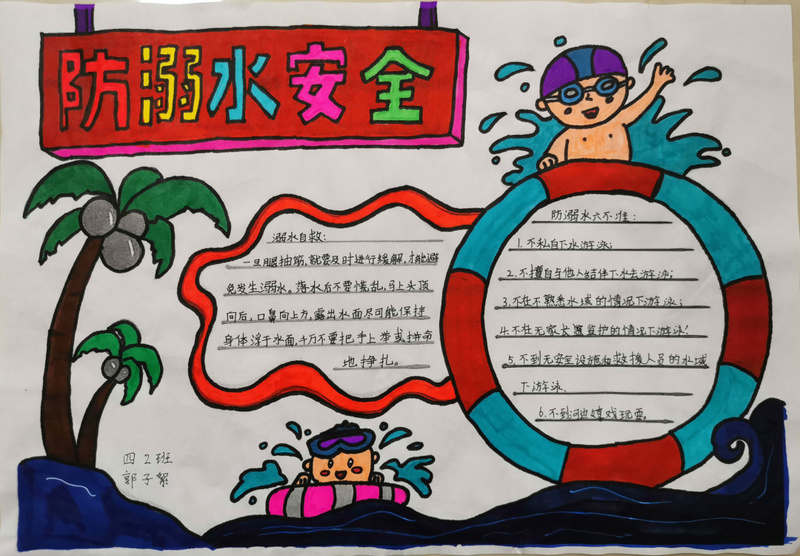 防溺水安全
溺水自救:
一旦腿抽筋,就要及时进行缓解,才能避
免发生溺水。落水后不要慌乱,马上头顶
向后,口鼻向上方,露出水面尽可能保持
身体浮于水面,千万不要把手上举或拼命
地挣扎。
防溺水六不准:
1.不私自下水游泳;
2.不擅自与他人结伴下水去游泳;
3.不在不熟悉水域的情况下游泳;
4.不在无家长监护的情况下游泳!
5.不到无安全设施和救援人员的水域
下游泳.
6.不到河池嬉戏玩耍。
四2班
郭子絮